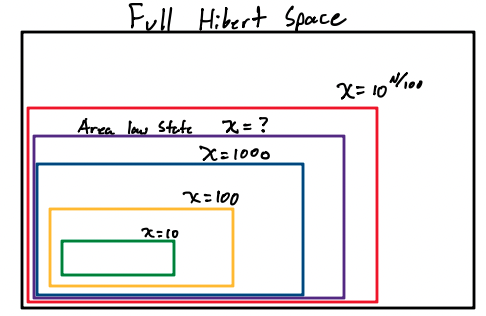 Full Hibert Space
χ = 10^N/100
Area law state χ = ?
χ = 1000
χ = 100
χ = 10